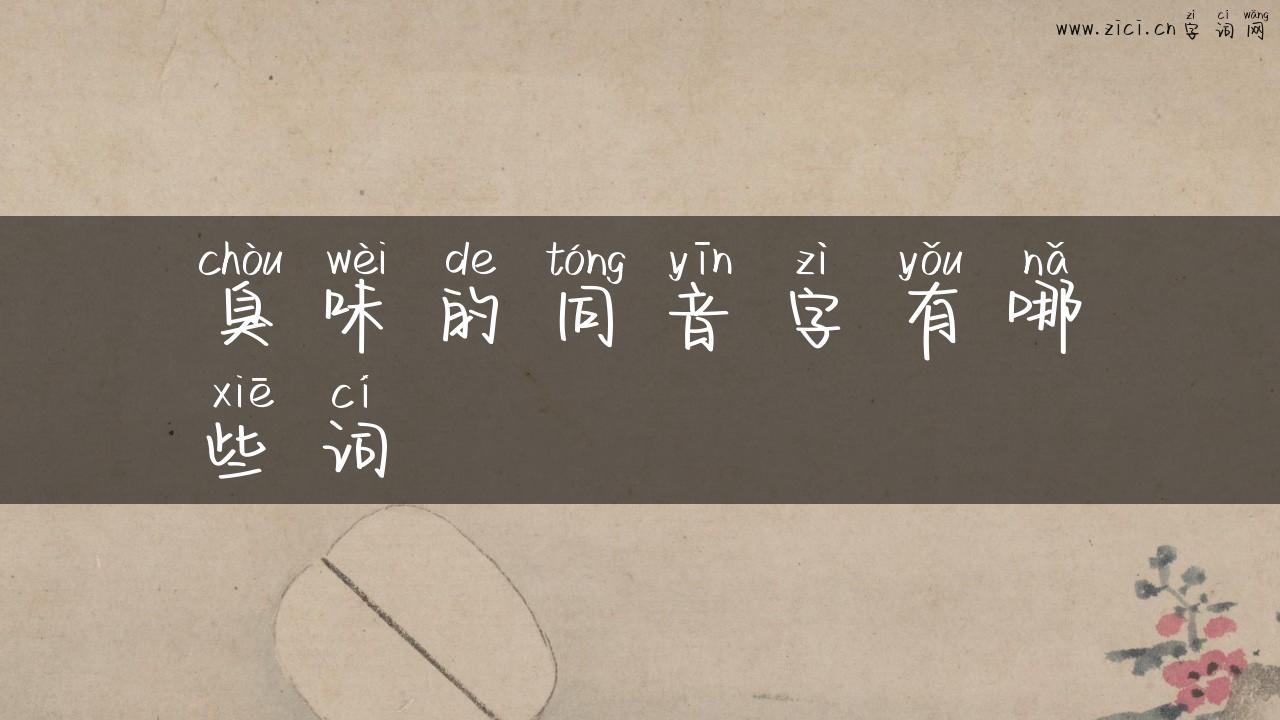 zì cí wǎng
www.zici.cn 字词网
chòu wèi de tóng yīn zì yǒu nǎ
臭味的同音字有哪
xiē cí
些词